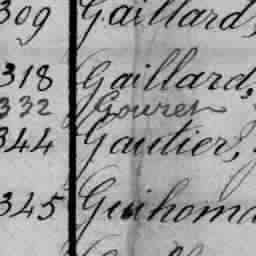 309 Gaillard,
318 Gaillard,
332 Gouren
344 Gautier,
345 Guihoma